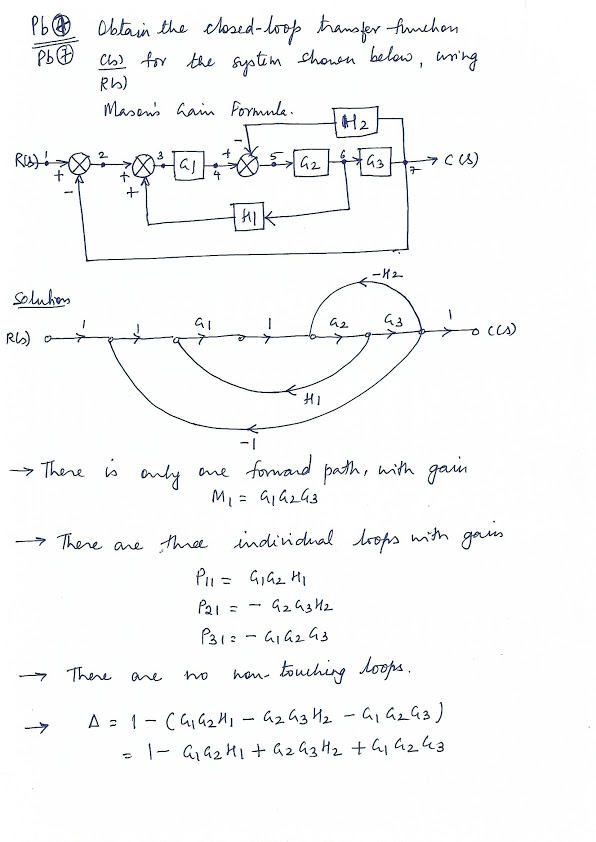 Pb④ Obtain the closed-loop transfer function
Pb⑦ C(s) for the system shown below, using
R(s)
Mason's Gain Formula.
H2
R(s) 1 2 3 G1 4 5 G2 6 G3 7 C(s)
+ - + + + -
H1
Solution
-H2
R(s) 1 1 G1 1 G2 G3 1 C(s)
H1
-1
→ There is only one forward path, with gain
M1 = G1G2G3
→ There are three individual loops with gain
P11 = G1G2H1
P21 = - G2G3H2
P31 = - G1G2G3
→ There are no non-touching loops.
→ Δ = 1 - (G1G2H1 - G2G3H2 - G1G2G3)
= 1 - G1G2H1 + G2G3H2 + G1G2G3